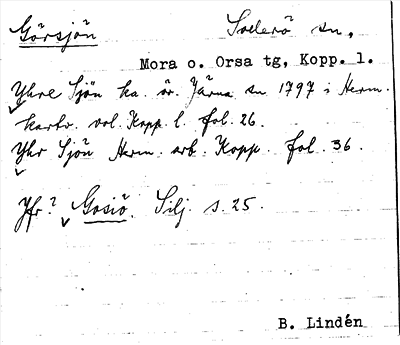 Görsjön Sollerö sn,
Mora o. Orsa tg, Kopp. l.
Yhre Sjön ka. öv. Järna sn 1797 i Herm.
kartv. vol. Kopp l. fol. 26.
Yhr Sjön Herm. arb. Kopp. fol. 36.
Jfr? Gosiö, Silj. s. 25.
B. Lindén